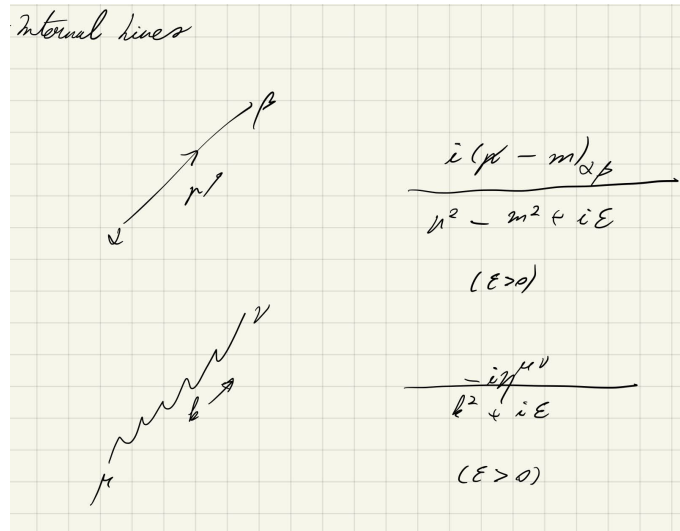 Internal lines
β
p
α
i(p̸ - m)αβ
p² - m² + iε
(ε>0)
ν
k
μ
-iημν
k² + iε
(ε>0)